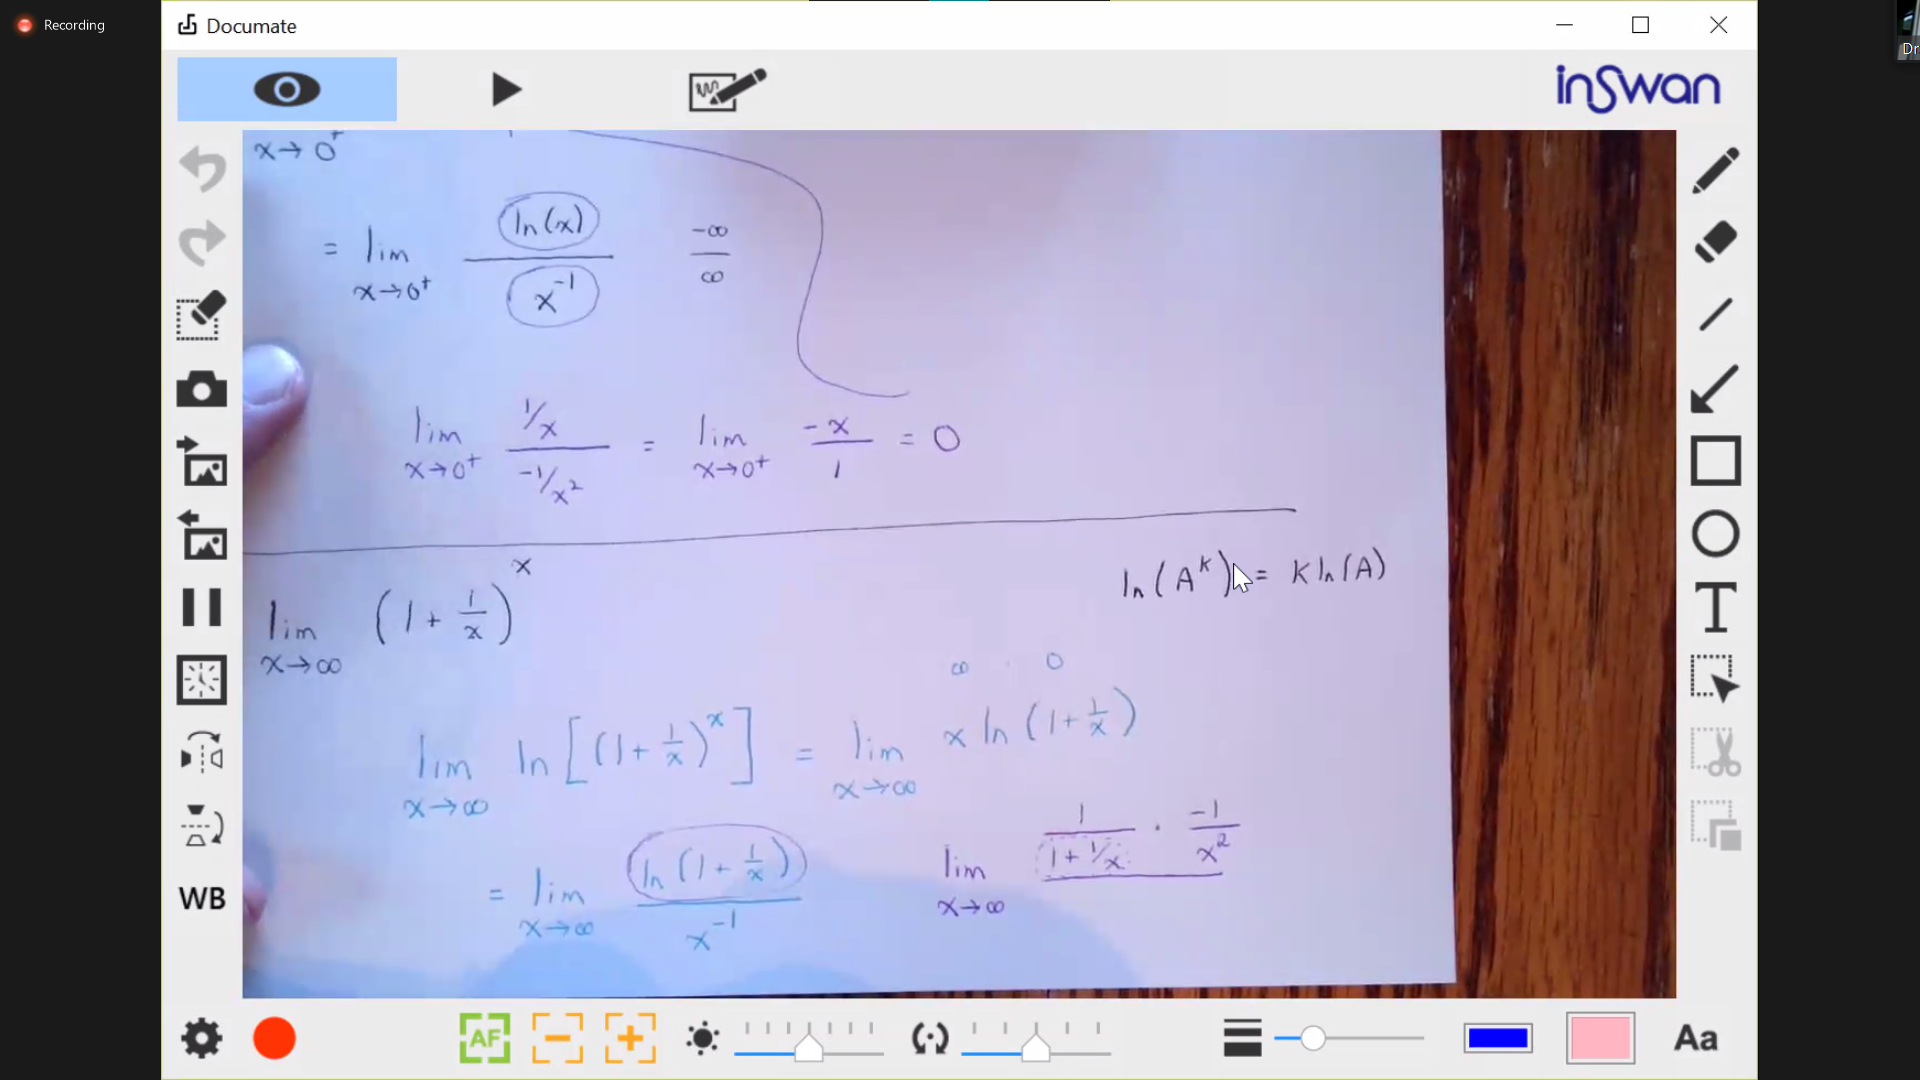 Recording
Documate
Dr
inSwan
x→0⁺
= lim x→0⁺ ln(x) / x⁻¹   -∞ / ∞
lim x→0⁺ (1/x) / (-1/x²) = lim x→0⁺ -x / 1 = 0
lim x→∞ (1 + 1/x)^x
ln(A^k) = k ln(A)
∞ · 0
lim x→∞ ln[(1 + 1/x)^x] = lim x→∞ x ln(1 + 1/x)
= lim x→∞ ln(1 + 1/x) / x⁻¹
lim x→∞ 1 / (1 + 1/x) · -1 / x²
T
WB
AF
Aa